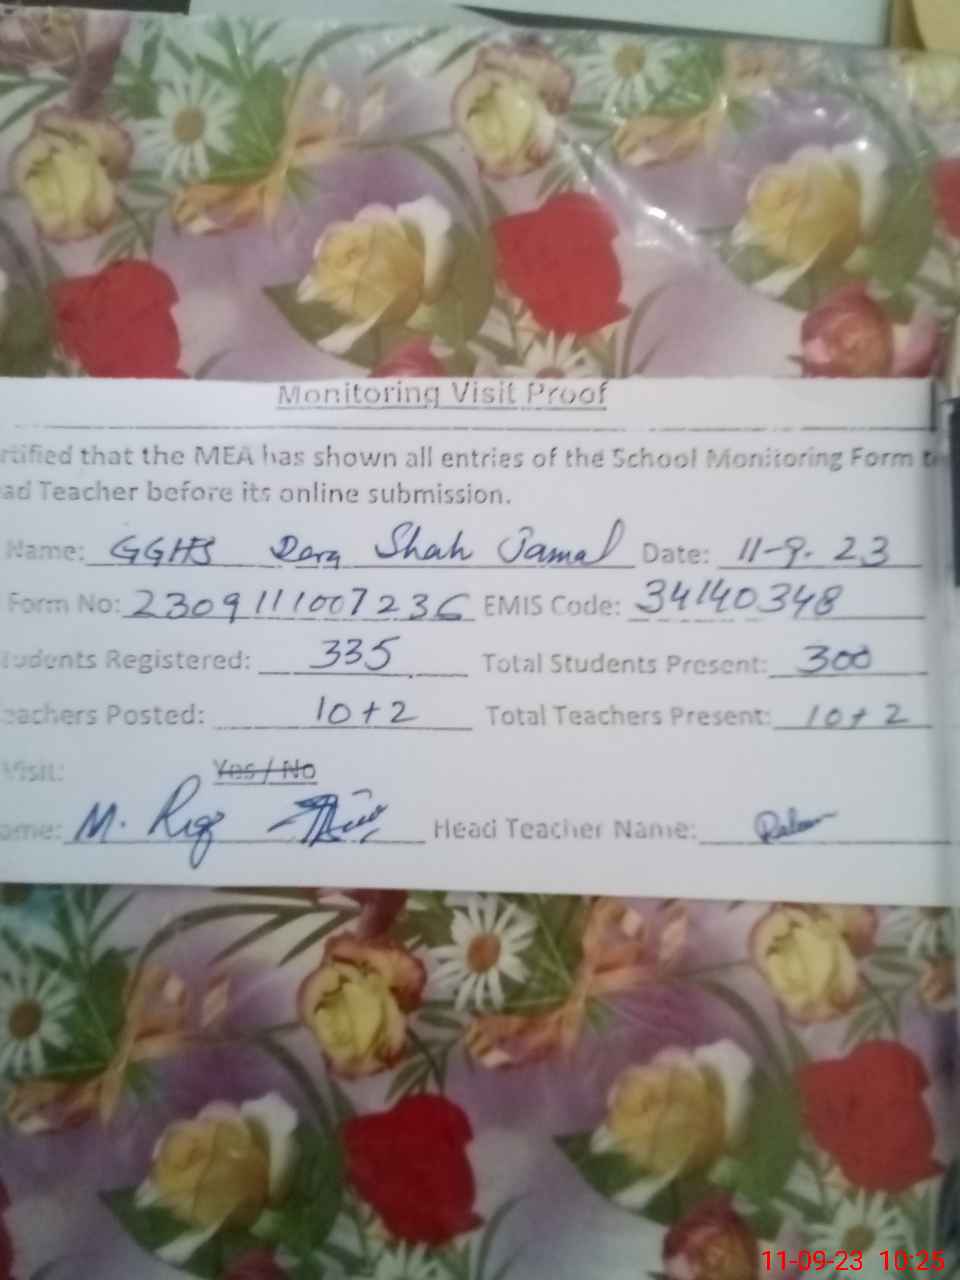 Monitoring Visit Proof
rtified that the MEA has shown all entries of the School Monitoring Form t
ad Teacher before its online submission.
Name: GGHS Darg Shah Jamal Date: 11-9-23
Form No: 2309111007236 EMIS Code: 34140348
tudents Registered: 335 Total Students Present: 300
eachers Posted: 10+2 Total Teachers Present: 10+2
Visit: Yes / No
ame: M. Head Teacher Name:
11-09-23 10:25